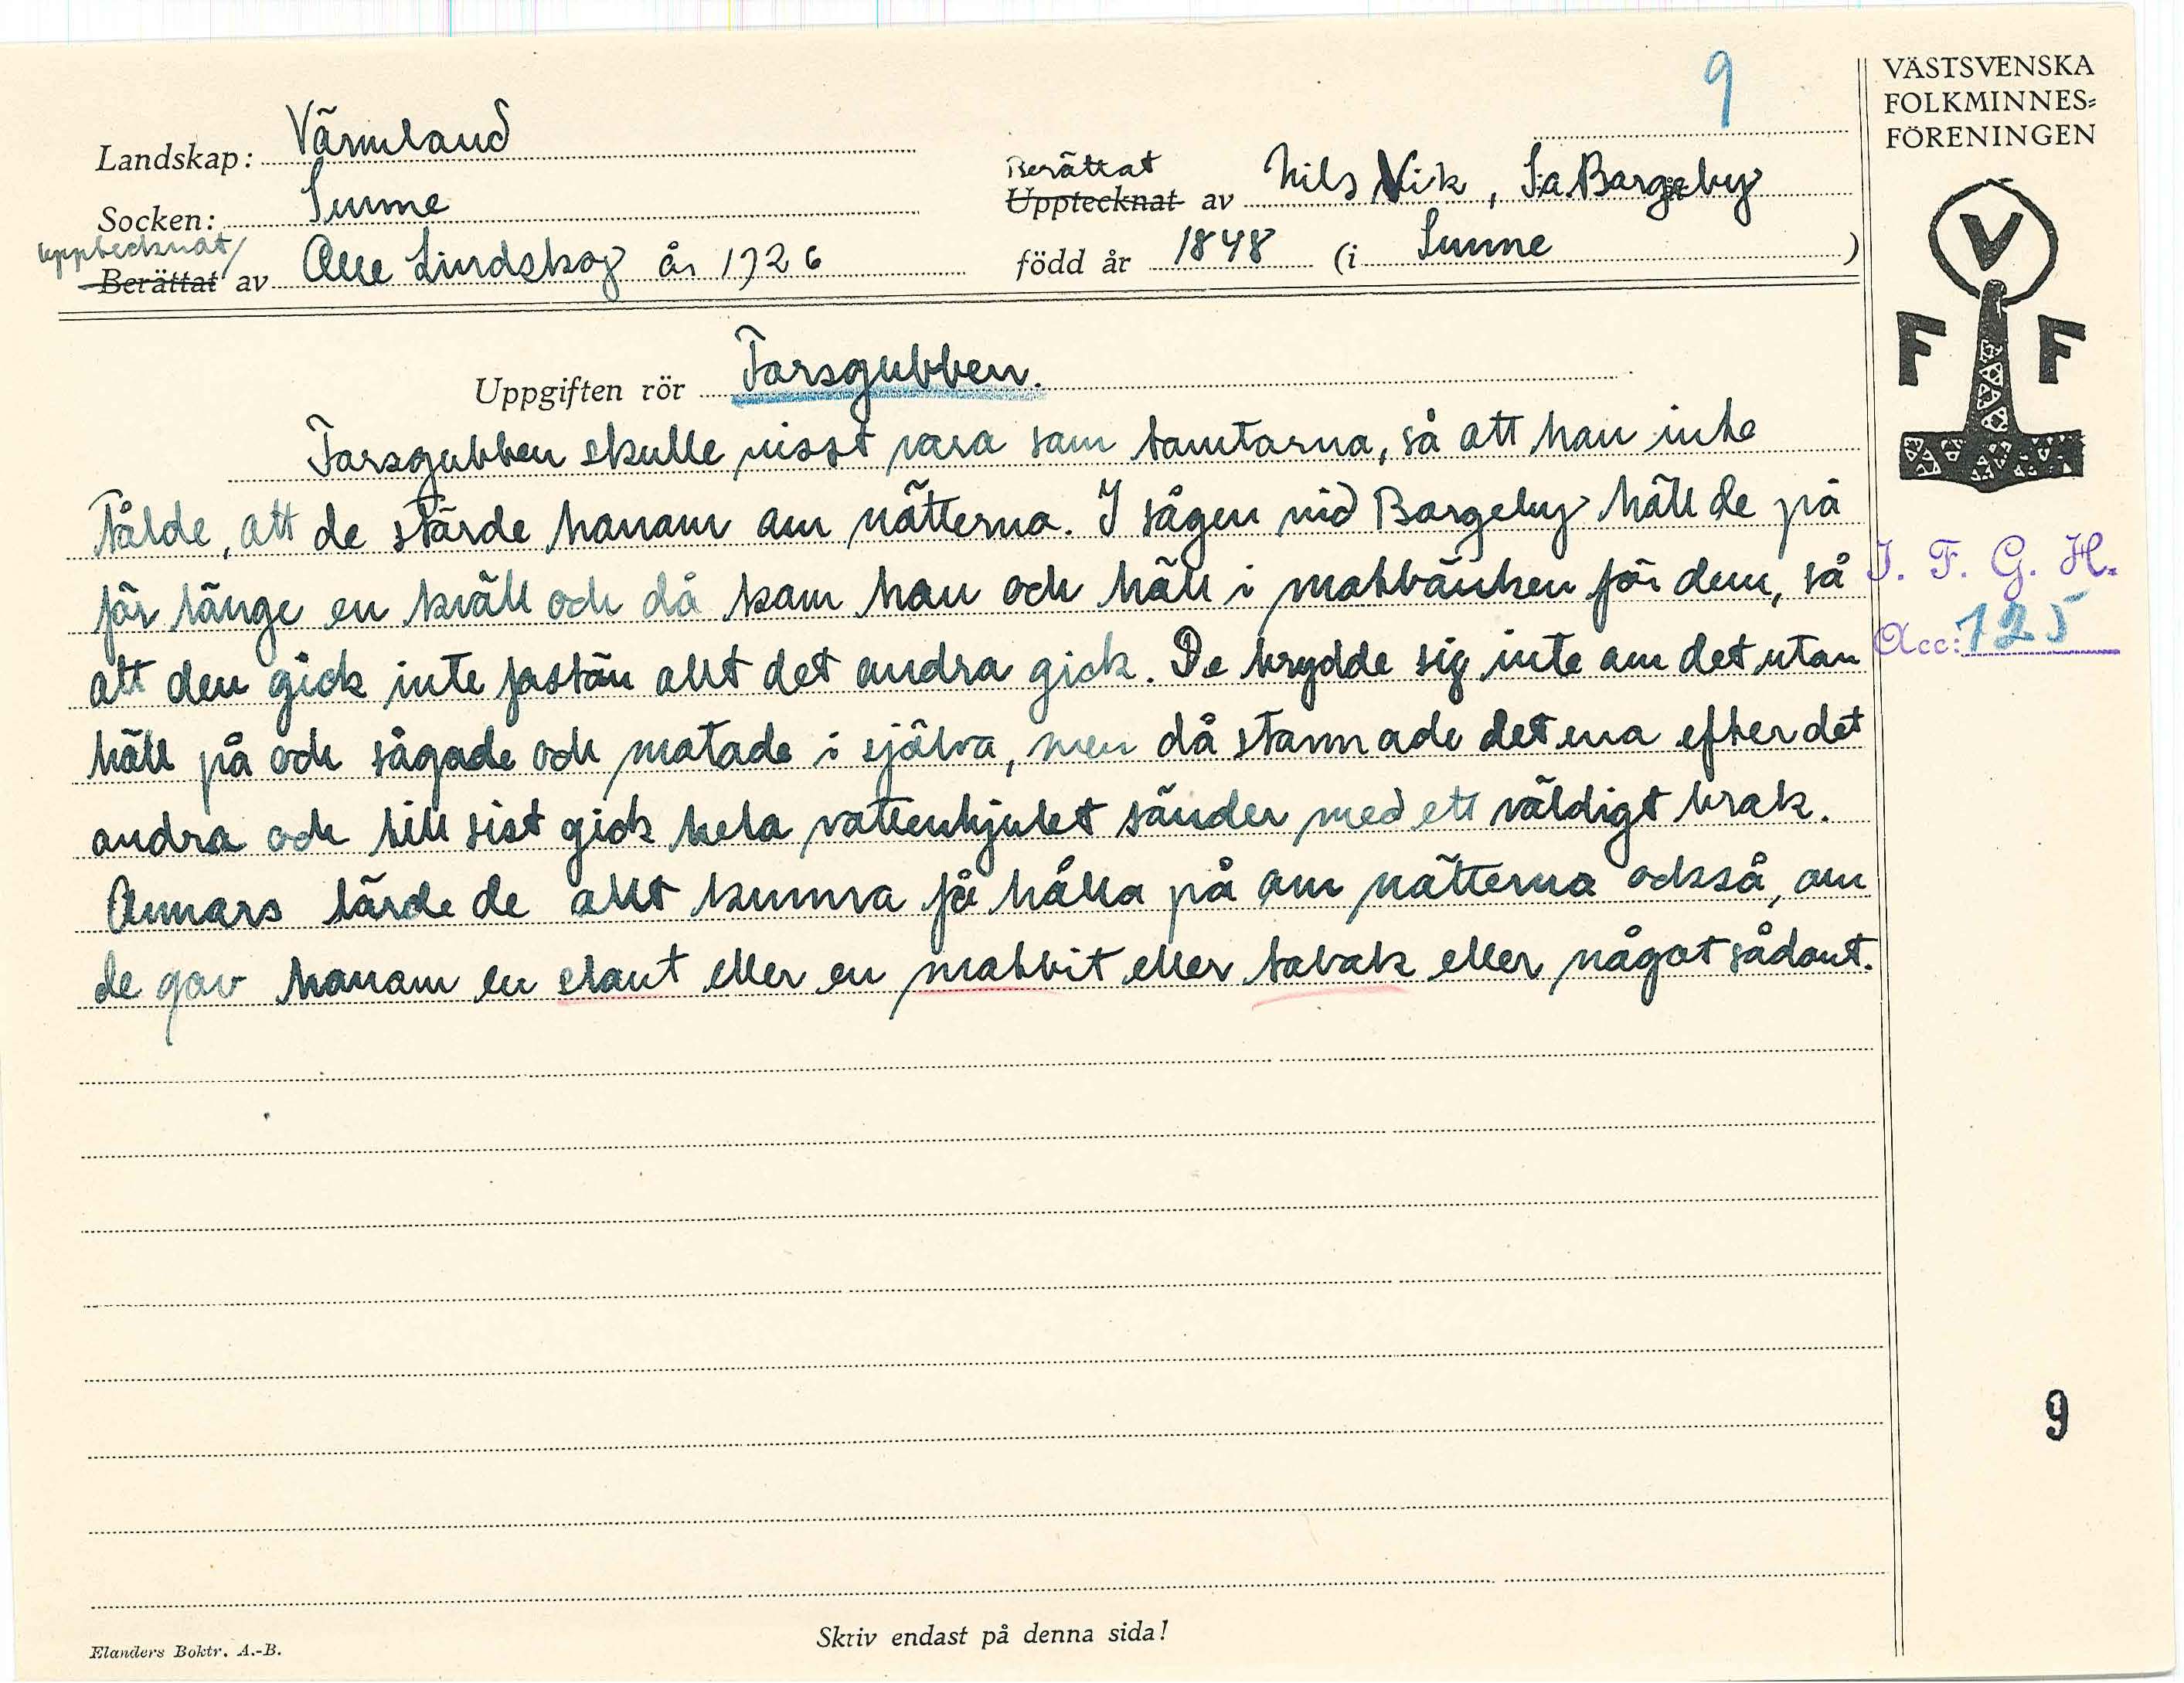 9
VÄSTSVENSKA
FOLKMINNES=
FÖRENINGEN
Landskap: Värmland
Socken: Sunne
Berättat
Upptecknat av Nils Vik, S:a Borgeby
upptecknat/
Berättat av Olle Lindskog år 1926
född år 1848 (i Sunne )
V
F F
Uppgiften rör Forsgubben.
Forsgubben skulle visst vara som tomtarna, så att han inte
tålde, att de störde honom om nätterna. I sågen vid Borgeby höll de på
för länge en kväll och då kom han och höll i matbänken för dem, så
att den gick inte fastän allt det andra gick. De brydde sig inte om det utan
höll på och sågade och matade i själva, men då stannade det ena efter det
andra och till sist gick hela vattenhjulet sönder med ett väldigt brak.
Annars lärde de allt kunna få hålla på om nätterna också, om
de gav honom en slant eller en matbit eller tobak eller något sådant.
I. F. G. H.
Acc: 125
9
Skriv endast på denna sida!
Elanders Boktr. A.-B.